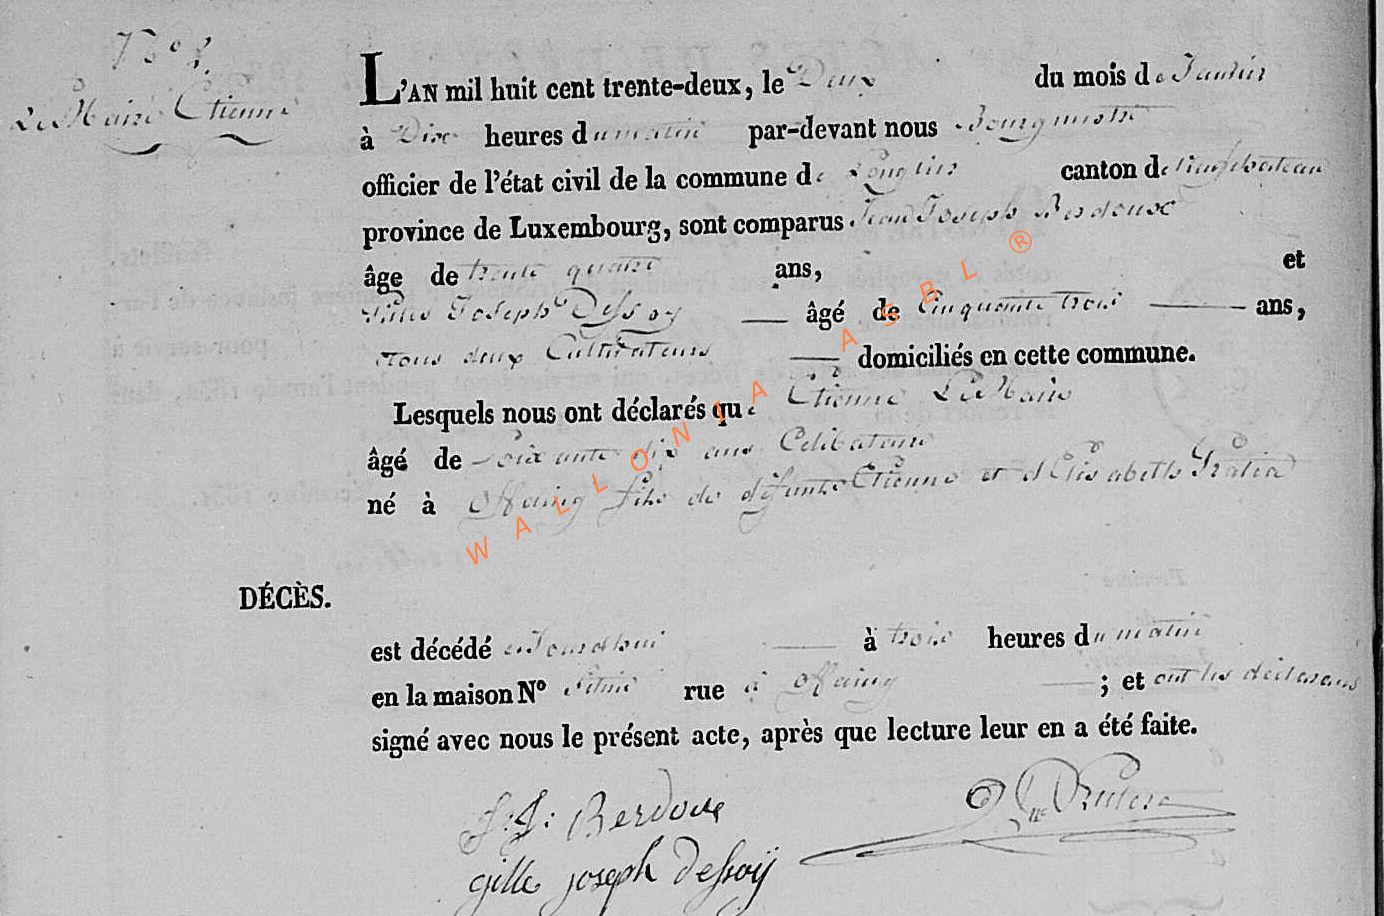 N° 1.
Le Maire Etienne
L'AN mil huit cent trente-deux, le Deux du mois de Janvier
à Dix heures du matin par-devant nous Bourgmestre
officier de l'état civil de la commune de Longlier canton de Neufchateau
province de Luxembourg, sont comparus Jean Joseph Berdouxe
âge de trente quatre ans, et
Gilles Joseph Dessoy — âgé de Cinquante trois — ans,
tous deux Cultivateurs — domiciliés en cette commune.
Lesquels nous ont déclarés que Etienne Le Maire
âgé de Soixante dix ans Celibataire
né à Offaing fils de defunts Etienne et d'Elisabeth
DÉCÈS.
est décédé aujourdhui — à trois heures du matin
en la maison N° située rue à Offaing — ; et ont les déclarans
signé avec nous le présent acte, après que lecture leur en a été faite.
J: J: Berdoux
gille joseph Dessoÿ
WALLONIA ASBL ®